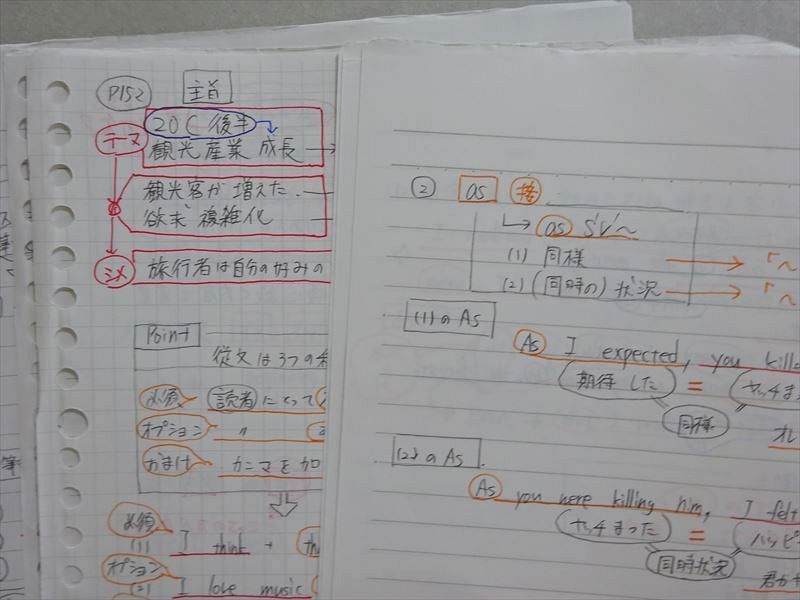 P152 主旨
テーマ 20C 後半
観光産業 成長 →
観光客が 増えた.
欲求 複雑化
シメ 旅行者は自分の好みの
Point
従文は3つの
必須 読者にとって
オプション 〃
おまけ カンマを加
必須
(1) I think + th
オプション
(2) I love music
② as 接
↳ as S'V'~
(1) 同様 → 「~
(2) (同時の) 状況 → 「~
(1)の As
As I expected, you kill
期待した = ヤッチま
同様
オレ
(2)の As
As you were killing him, I felt
ヤッチまった = ハッピ
同時状況
君がヤ